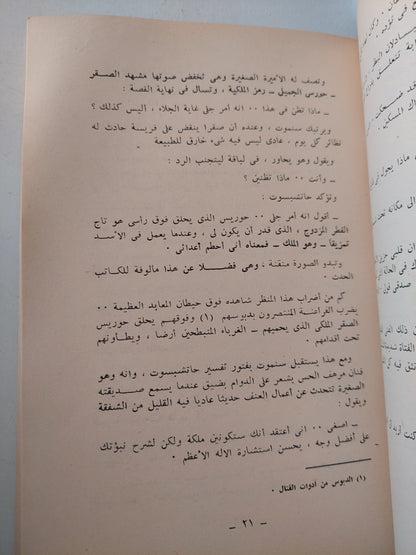 وتصف له الاميرة الصغيرة وهى تخفض صوتها مشهد الصقر
حورسى الجميل ــ رمز الملكية ــ وتسأل فى نهاية القصة :
ــ ماذا تظن فى هذا ٠٠ انه امر جلى غاية الجلاء ، اليس كذلك ؟
ويرتبك سنموت ، وعنده أن صقرا ينقض على فريسة حادث له
نظائر كل يوم ، عادى ليس فيه شىء خارق للطبيعة
ويقول وهو يحاور ، فى لباقة ليتجنب الرد :
ــ وأنت ٠٠ ماذا تظنين ؟
وتؤكد حاتشبسوت :
ــ أقول انه امر جلى ٠٠ حوريس الذى يحلق فوق رأسى هو تاج
القطر المزدوج ، الذى قدر أن يكون لى ، وعندما يعمل فى الأسد
تمزيقا ــ وهو الملك ــ فمعناه أنى احطم أعدائى ٠
وتبدو الصورة متقنة ، وهى فضلا عن هذا مالوفة للكاتب
الحدث ٠
كم من اضراب هذا المنظر شاهده فوق حيطان المعابد العظيمة ٠٠
يضرب الفراعنة المنتصرون بدبوسهم (١) وفوقهم يحلق حوريس
الصقر الملكى الذى يحميهم ــ الغرباء المتبطحين أرضا ، ويطاونهم
تحت أقدامهم ٠
ومع هذا يستقبل سنموت بفتور تفسير حاتشبسوت ، وانه وهو
فنان مرهف الحس يشعر على الدوام بضيق عندما يسمع صديقته
الصغيرة تتحدث عن أعمال العنف حديثا عاديا فيه القليل من الشفقة
ويقول :
ــ اصغى ٠٠ انى أعتقد أنك ستكونين ملكة ولكن لشرح نبؤتك
على أفضل وجه ، يحسن استشارة الاله الأعظم ٠
(١) الدبوس من أدوات القتال ٠
ــ ٢١ ــ